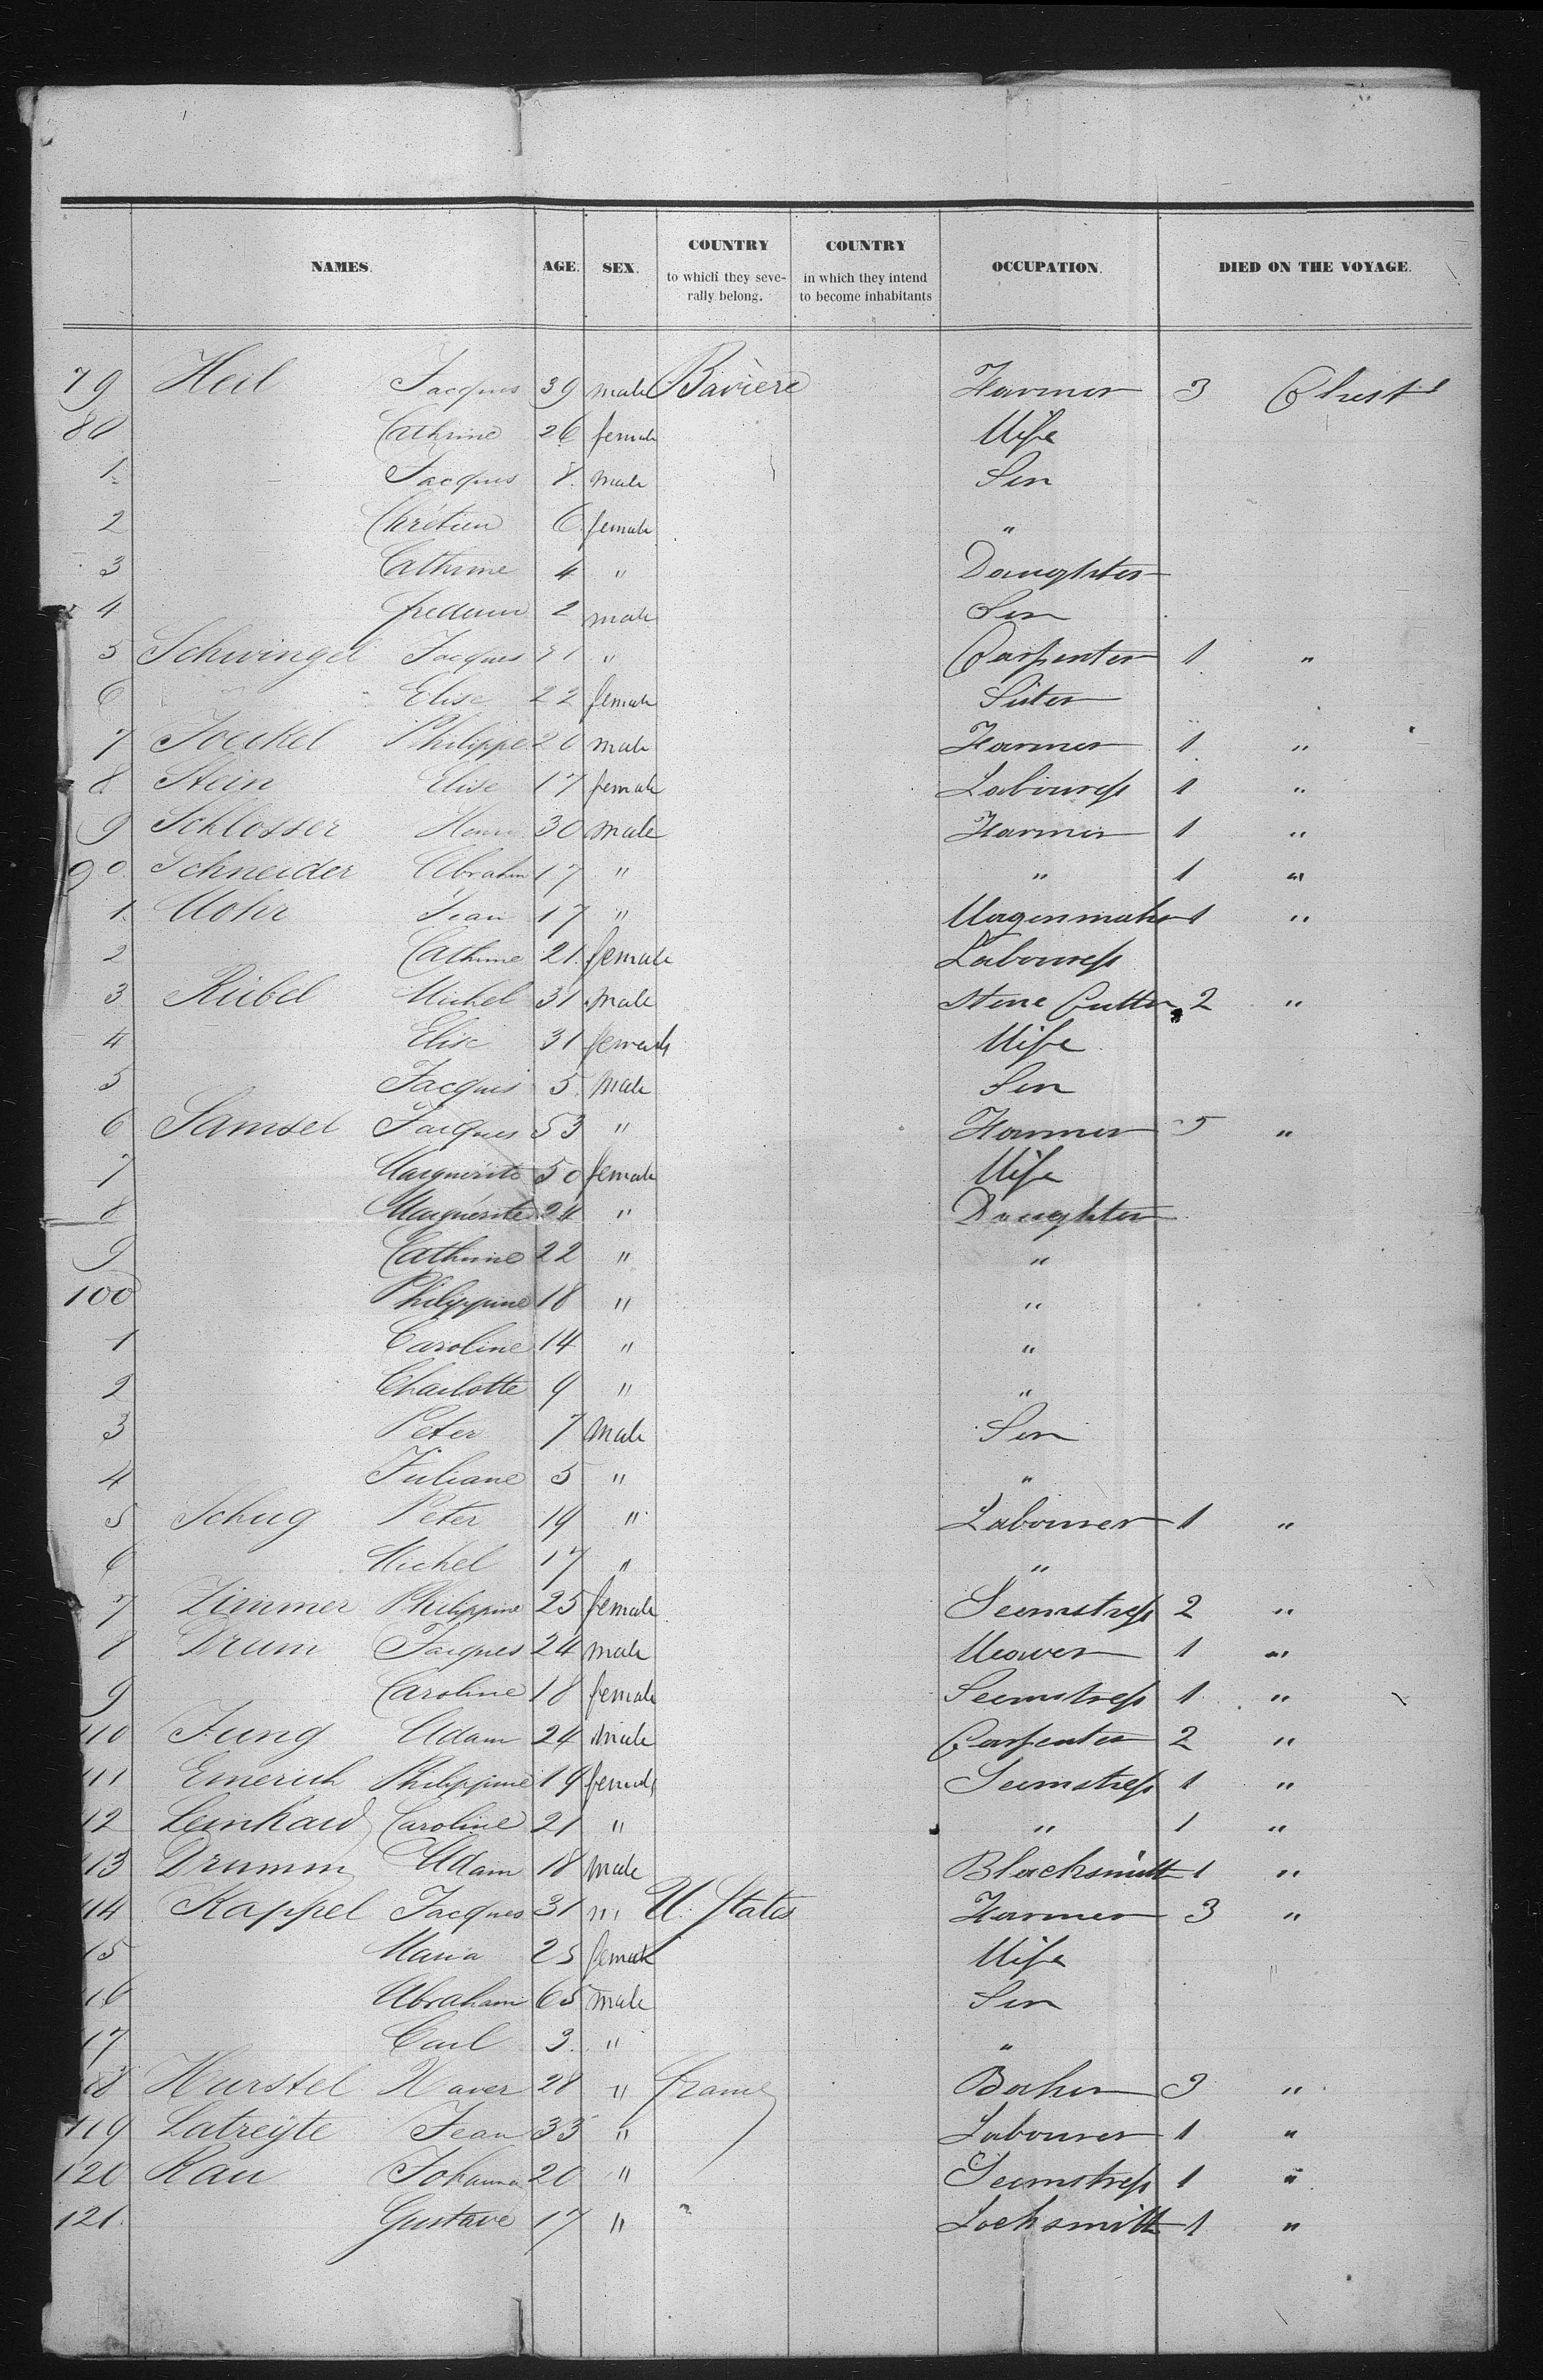 NAMES. AGE. SEX. COUNTRY to which they severally belong. COUNTRY in which they intend to become inhabitants OCCUPATION. DIED ON THE VOYAGE.
79 Heil Jacques 39 male Bavière Farmer 3 Chest
80 Cathrine 26 female Wife
1 Jacques 8 male Son
2 Chrétien 6 female "
3 Cathrine 4 " Daughter
4 2 male Son
5 Schwingel Jacques " Carpenter 1 "
6 Elise 22 female Sister
7 Joeckel Philippe 20 male Farmer 1 "
8 Stein Elise 17 female Labouress 1 "
9 Schlosser Henri 30 male Farmer 1 "
90 Schneider Abrahm 17 " " 1 "
1 Mohr Jean 17 " Wagenmaker 1 "
2 Cathrine 21 female Labouress
3 Rübel Michel 31 male Stone Cutter 2 "
4 Elise 31 female Wife
5 Jacques 5 male Son
6 Samsel Jacques 53 " Farmer 5 "
7 Marguérite 50 female Wife
8 Marguérite 24 " Daughter
9 Cathrine 22 " "
100 Philippine 18 " "
1 Caroline 14 " "
2 Charlotte 9 " "
3 Peter 7 male Son
4 Juliane 5 " "
5 Schug Peter 19 " Labourer 1 "
6 Michel 17 " "
7 Zimmer Philippine 25 female Seemstress 2 "
8 Drum Jacques 24 male 1 "
9 Caroline 18 female Seemstress 1 "
110 Jung Adam 24 male Carpenter 2 "
111 Emerich Philippine 19 female Seemstress 1 "
12 Leinhard Caroline 21 " " 1 "
113 Drumm Adam 18 male Blacksmith 1 "
114 Kappel Jacques 31 m U. States Farmer 3 "
15 Maria 25 female Wife
16 Abraham 65 male Son
17 Carl 3 " "
18 Hurstel Xaver 28 " france Baker 3 "
119 Latreyte Jean 33 " Labourer 1 "
120 Rau Johanna 20 " Seemstress 1 "
121. Gustave 17 " " Locksmith 1 "